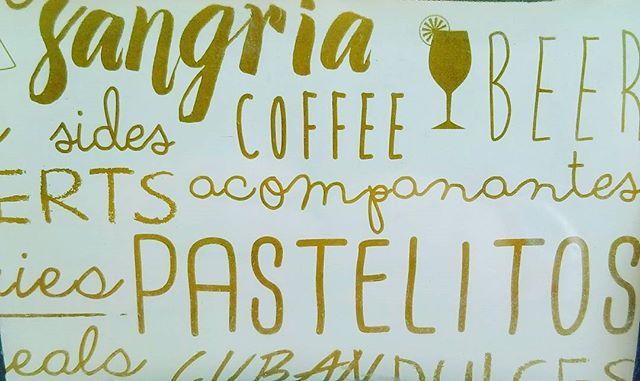 sangria
COFFEE BEER
sides
ERTS acompanantes
ies PASTELITOS
eals CUBAN DULCES